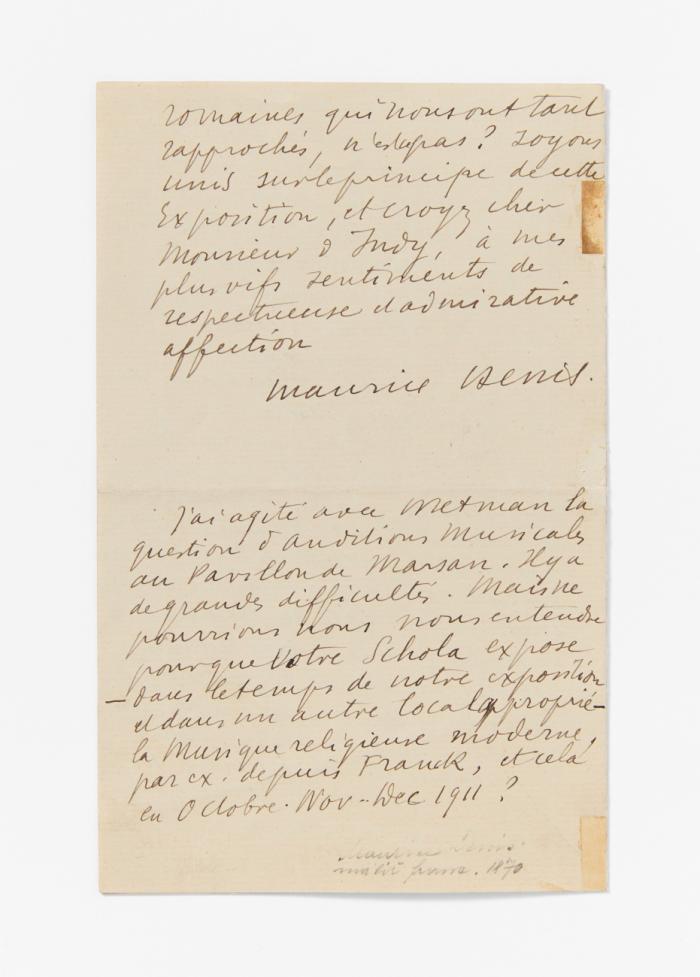 romaines qui nous ont tant
rapprochés, n'est-ce pas? Soyons
unis sur le principe de cette
Exposition, et croyez cher
Monsieur d'Indy, à mes
plus vifs sentiments de
respectueuse et admirative
affection
Maurice Denis.
J'ai agité avec Metman la
question d'auditions musicales
au Pavillon de Marsan. Il y a
de grandes difficultés. Mais ne
pourrions nous nous entendre
pour que Votre Schola expose
– dans le temps de notre exposition
et dans un autre local approprié –
la Musique religieuse moderne,
par ex. depuis Franck, et cela
en Octobre. Nov.. Dec 1911 ?
Maurice Denis.
1870